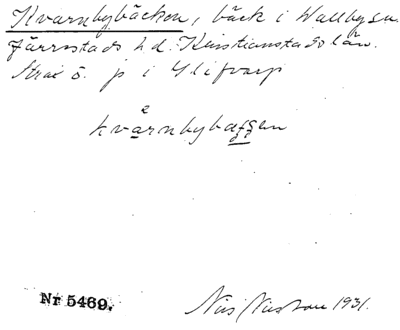 Kvarnbybäcken, bäck i Wallby sn.
Järrestads hd. Kristianstads län.
Strax ö. p i Glifvarp
kvarnbybæggen
Nr 5469.
Nils Nilsson 1931.